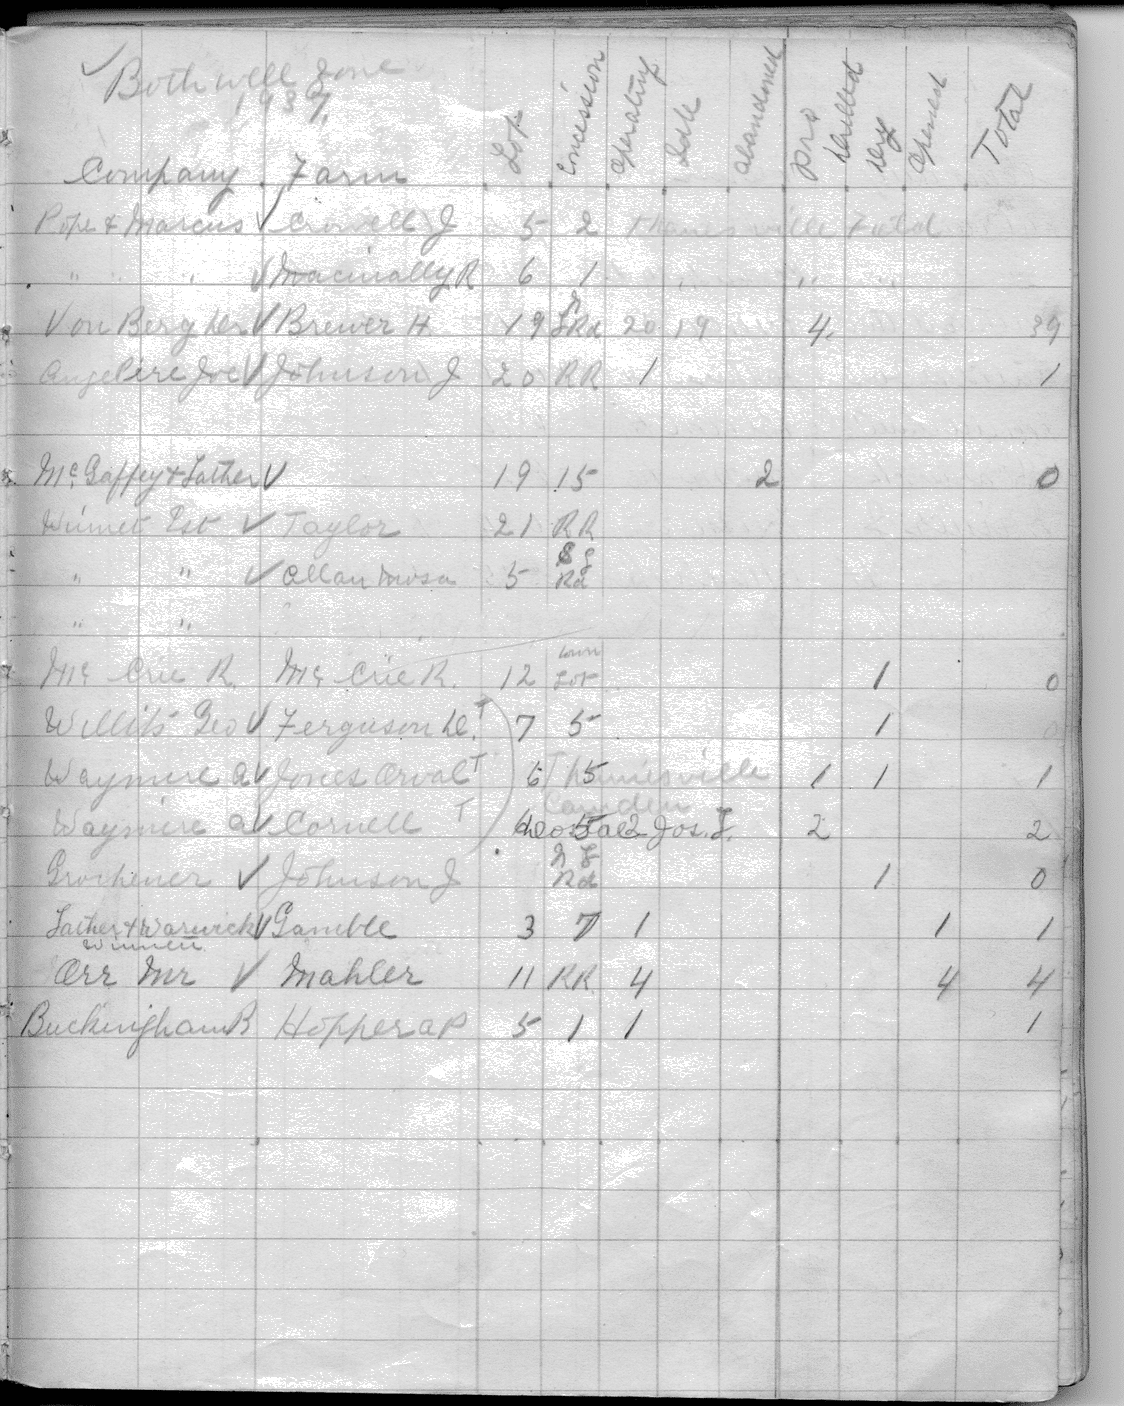 ✓ Bothwell Zone
1937
Company Farm Lot Concession Operating Idle abandoned Pro drilled Dry Opened Total
Pope & Marcus ✓ Crowell J 5 2 Thamesville Field
" " " ✓ Macinally R 6 1 " "
Von Berg ✓ Brewer H 19 Rd 20 19 4 39
Joe ✓ Johnson J 20 RR 1 1
Mc Gaffey & ✓ 19 15 2 0
Est ✓ Taylor 21 RR
" " ✓ Allan Mosa 5 Rd
" "
Mc Crie R. Mc Crie R. 12 Town Lot 1 0
Willits Geo ✓ Ferguson T 7 5 1 0
Waymire A ✓ Jones Orval T 6 5 Thamesville 1 1 1
Camden
Waymire A ✓ Cornell T 5 2 Jos. 2 2
✓ Johnson J Rd 1 0
& Warwick ✓ Gamble 3 7 1 1 1
Orr Mr ✓ Mahler 11 RR 4 4 4
Buckingham B Hopper AP 5 1 1 1